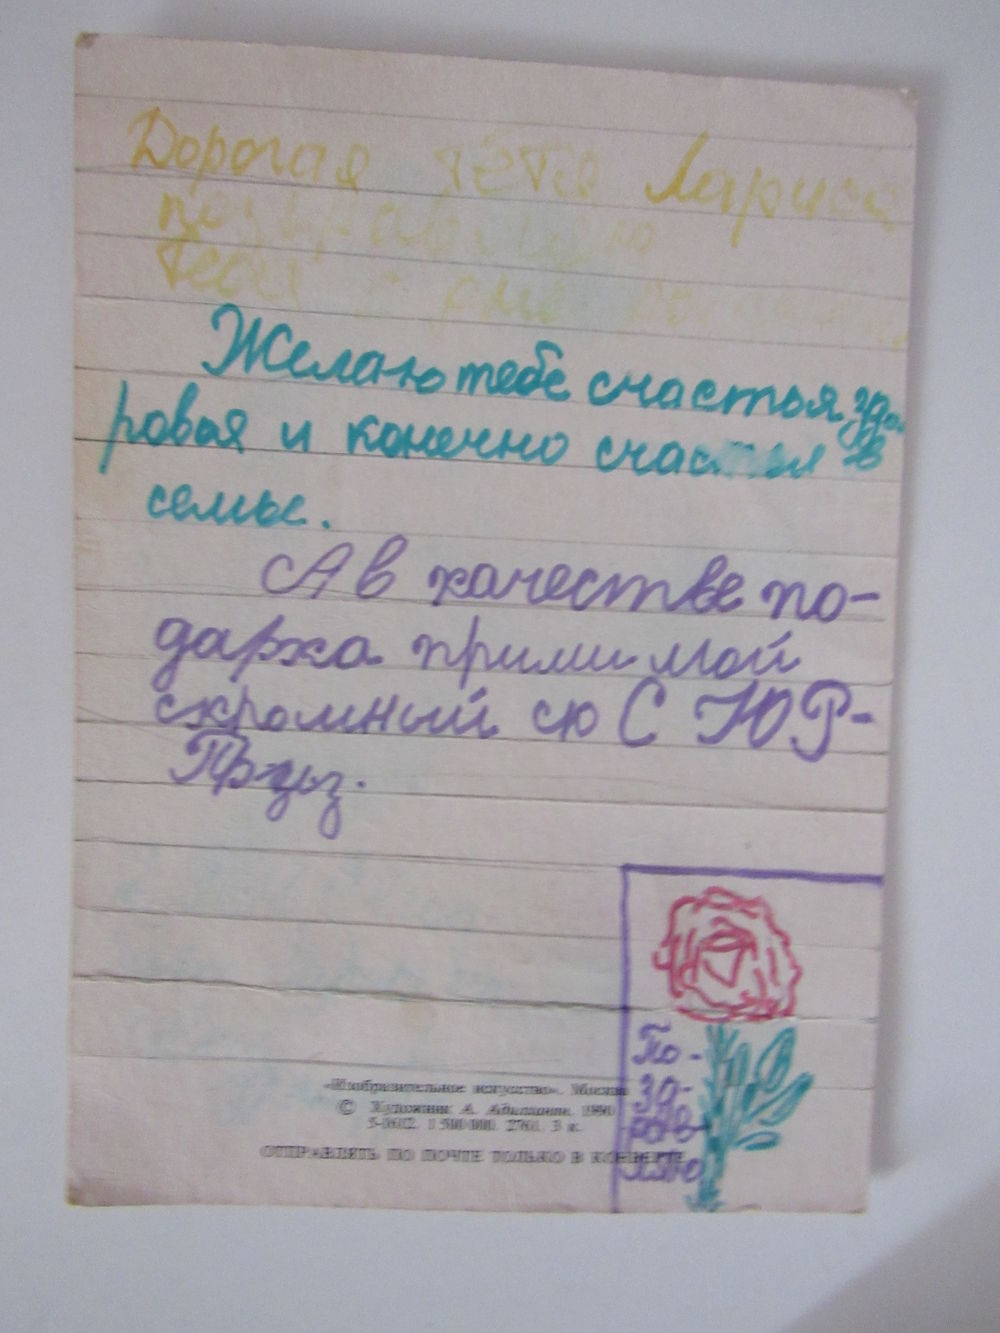 Дорогая тётя Лариса
поздравляю
тебя с днём
Желаю тебе счастья, здо
ровья и конечно счастья в
семье.
А в качестве по-
дарка прими мой
скромный сю С ЮР-
ПРыз.
По-
здо-
ров-
ляю
«Изобразительное искусство». Москва
© Художник А. 1990
5-0612. 1 500 000. 2761. 3 к.
ОТПРАВЛЯТЬ ПО ПОЧТЕ ТОЛЬКО В КОНВЕРТЕ